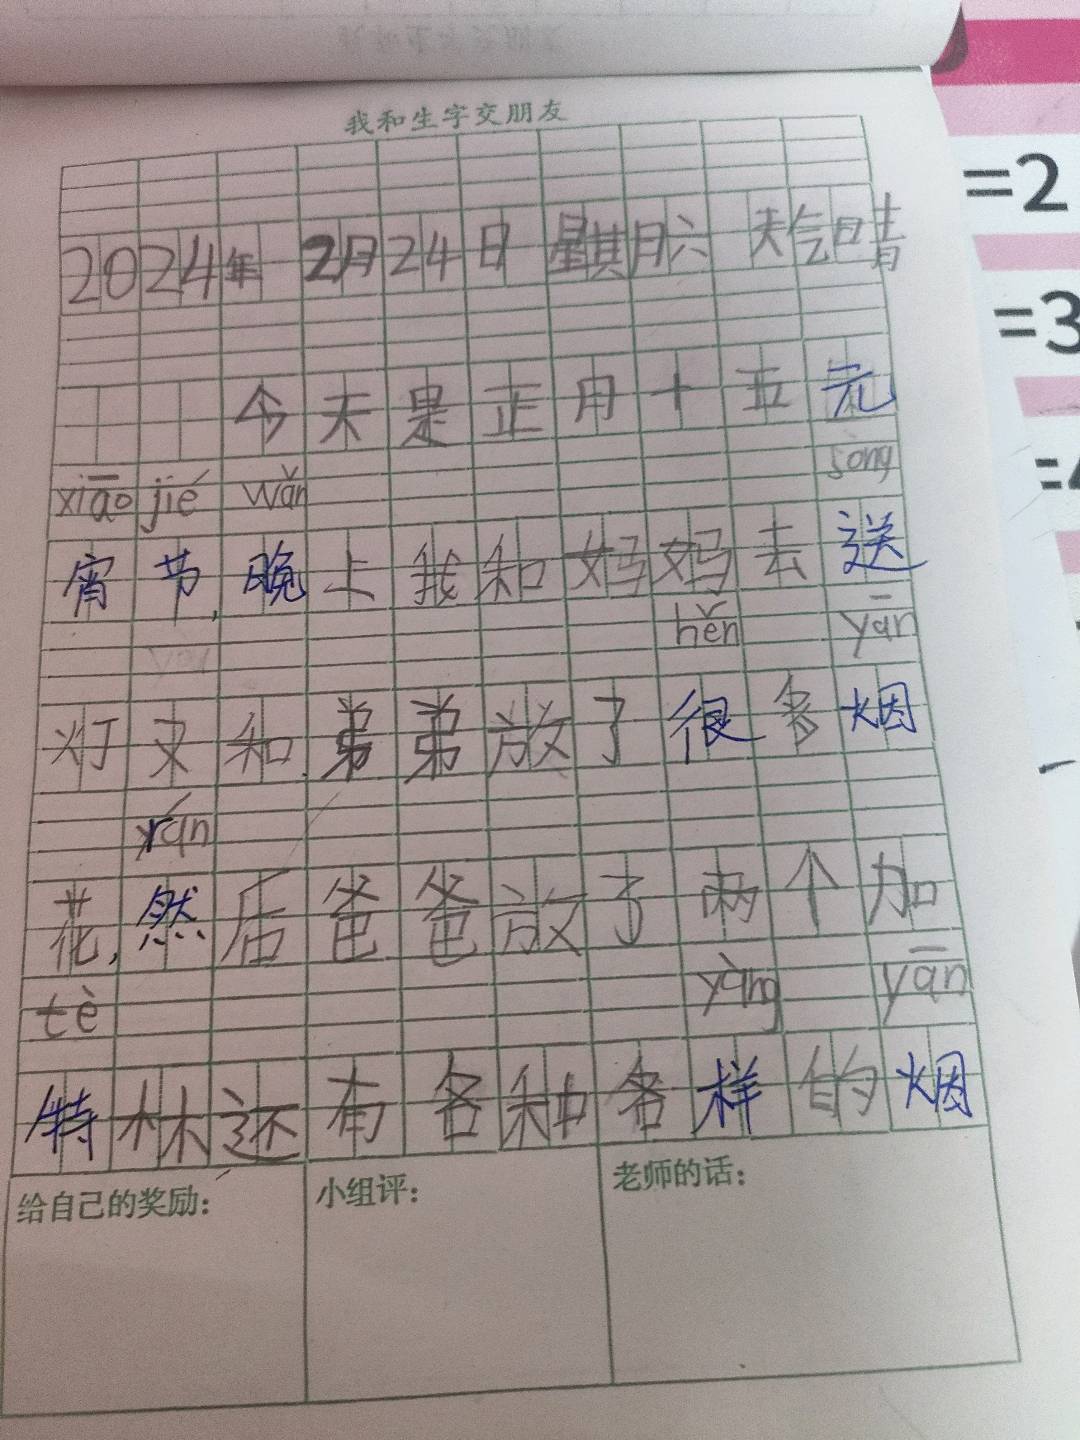 我和生字交朋友
2024年 2月24日 星期六 天气晴
今天是正月十五元
xiāo jié wǎn sòng
宵节,晚上我和妈妈去送
hěn yān
灯又和弟弟放了很多烟
rán
花,然后爸爸放了两个加
tè yàng yān
特林还有各种各样的烟
给自己的奖励:
小组评:
老师的话:
=2
=3